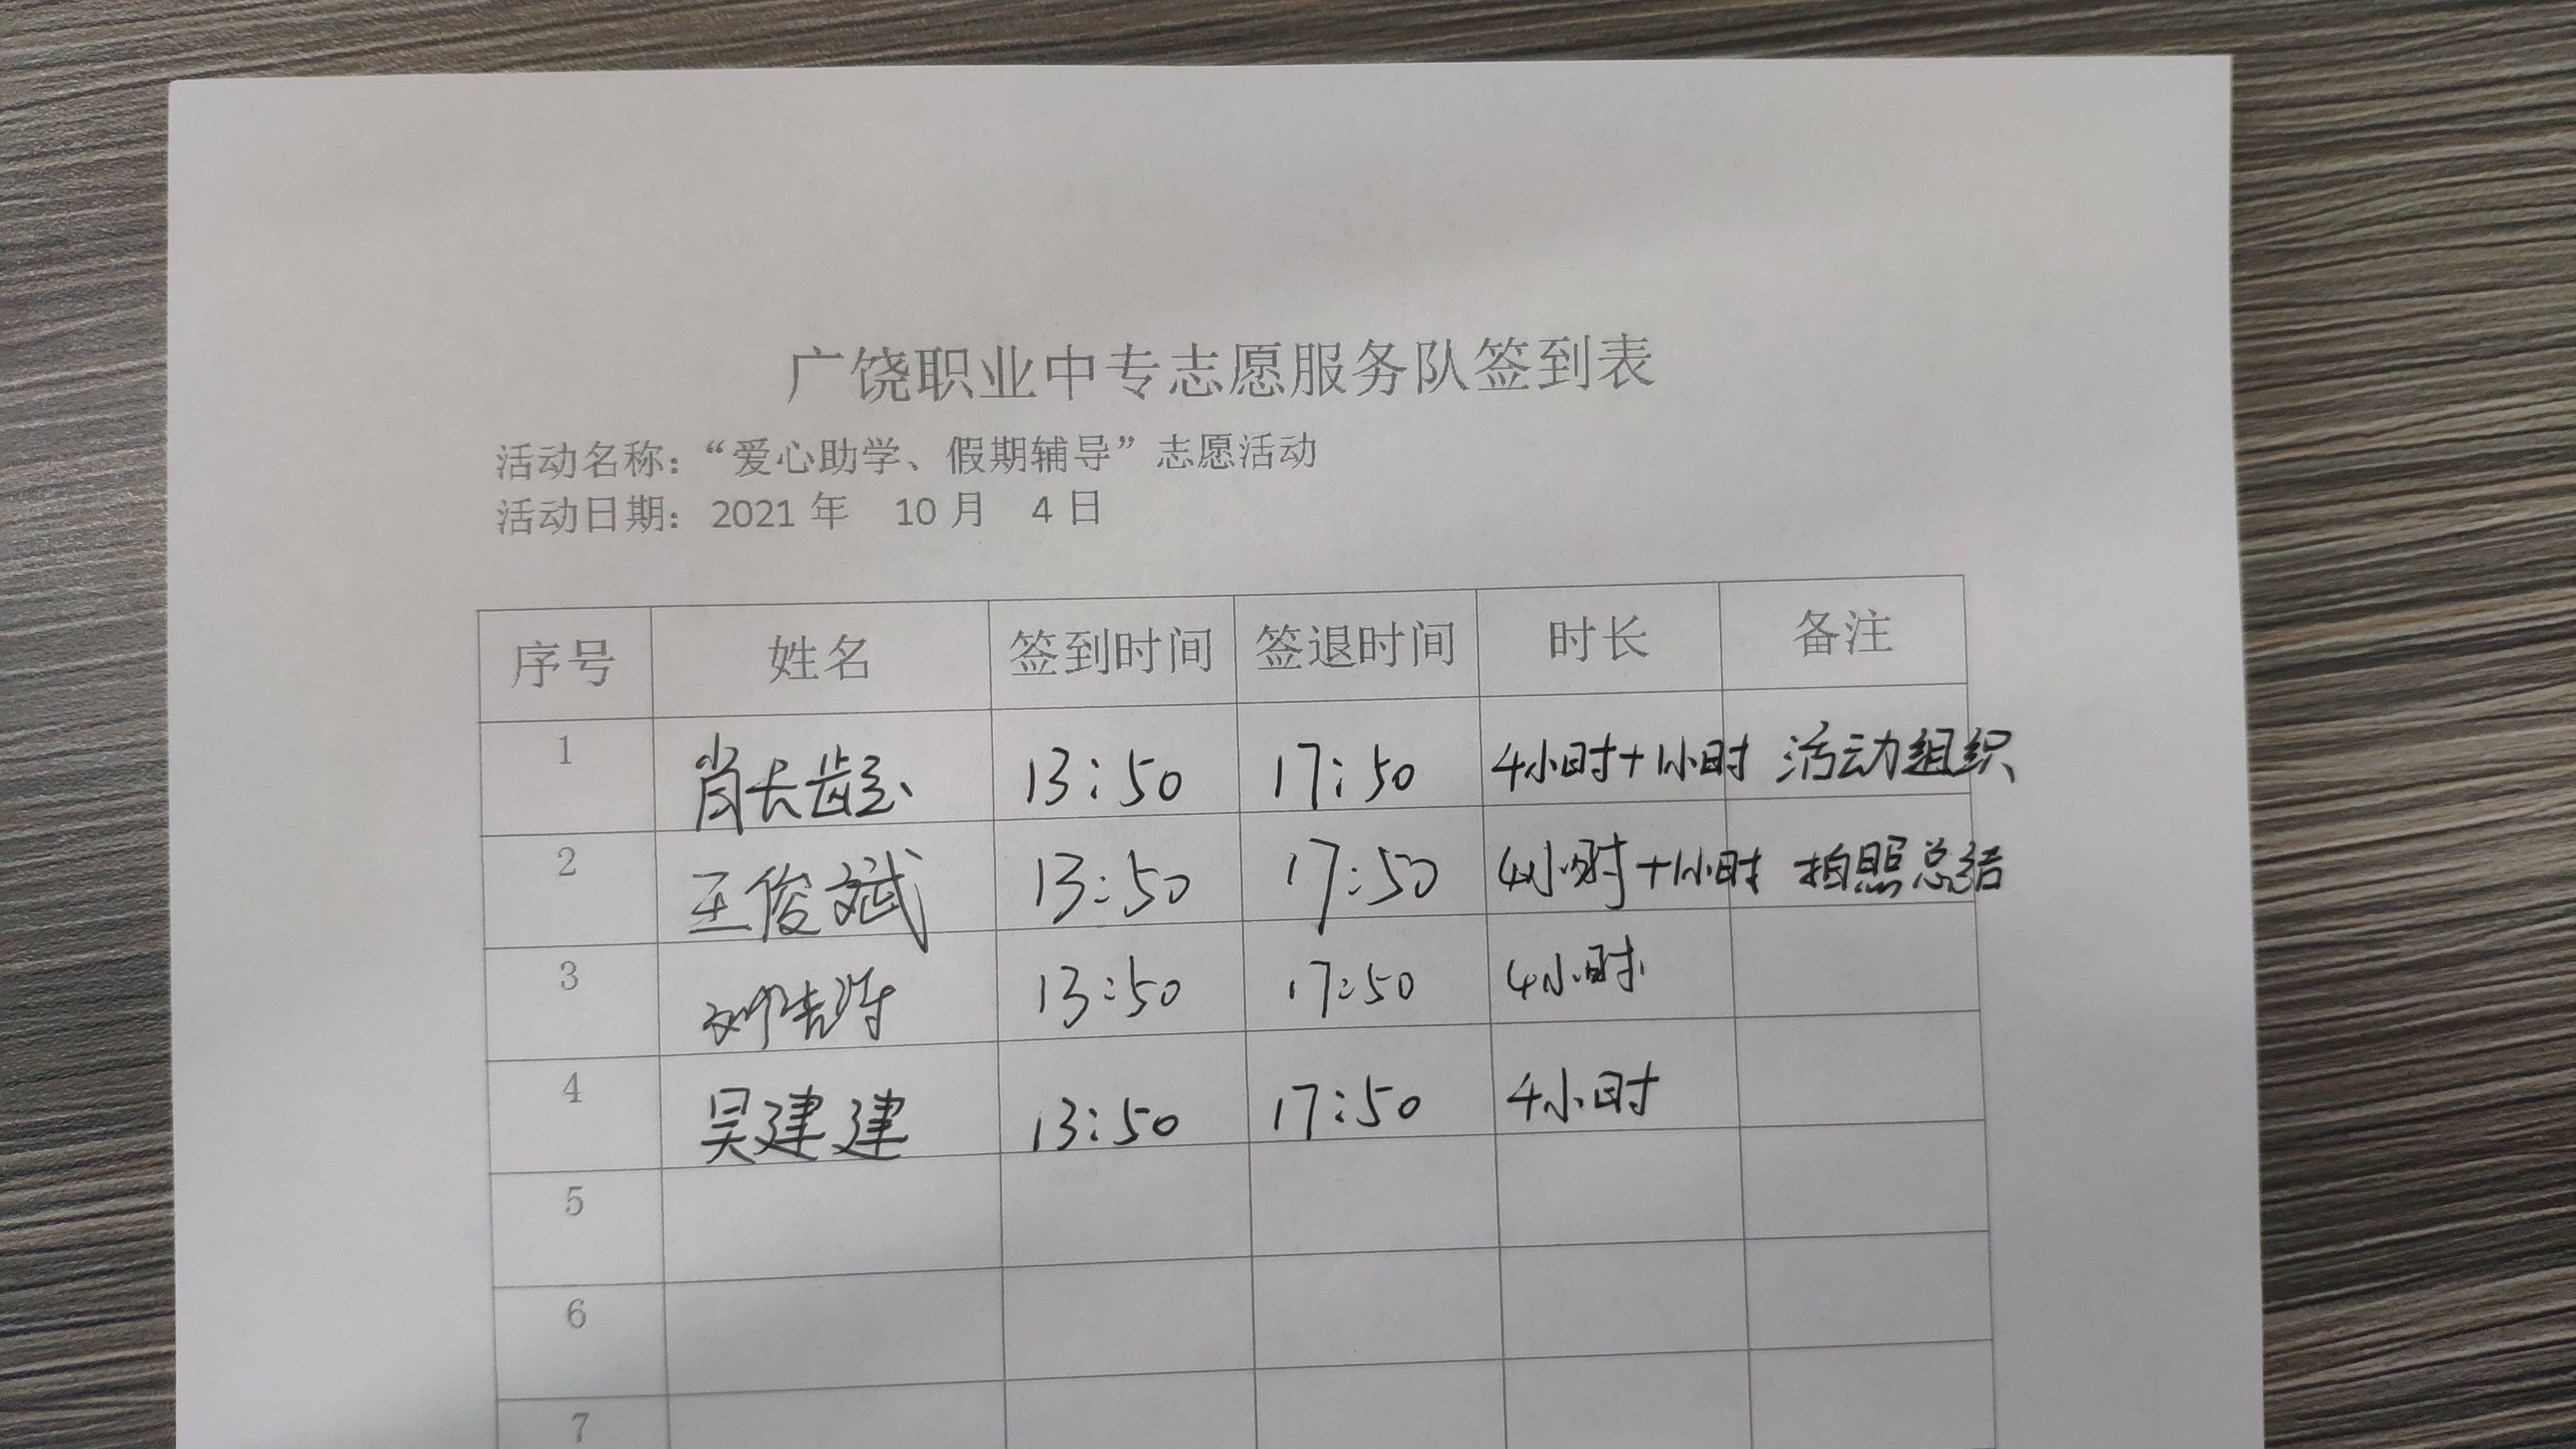 广饶职业中专志愿服务队签到表
活动名称：“爱心助学、假期辅导”志愿活动
活动日期：2021 年 10 月 4 日
序号 姓名 签到时间 签退时间 时长 备注
1 肖长龄 13:50 17:50 4小时+1小时 活动组织
2 王俊斌 13:50 17:50 4小时+1小时 拍照总结
3 刘 13:50 17:50 4小时
4 吴建建 13:50 17:50 4小时
5
6
7